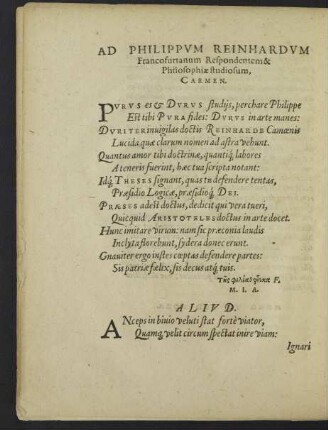 AD PHILIPPVM REINHARDVM
Francofurtanum Respondentem &
Philosophiæ studiosum,
CARMEN.
PVRVS & DVRVS studijs, perchare Philippe
Est tibi PVRA fides: DVRVS in arte manes:
DVRITER inuigilas doctis REINHARDE Camœnis
Lucida quæ clarum nomen ad astra vehunt.
Quantus amor tibi doctrinæ, quantiq́; labores
A teneris fuerint, hæc tua scripta notant:
Idq́; THESES signant, quas tu defendere tentas,
Præsidio Logicæ, præsidioq́; DEI.
PRÆSES adest doctus, dedicit qui vera tueri,
Quicquid ARISTOTELES doctus in arte docet.
Hunc imitare virum: nam sic præconia laudis
Inclyta florebunt, sydera donec erunt.
Gnauiter ergo iustes cœptas defendere partes:
Sis patriæ fœlix, sis decus atq́; tuis.
F.
M. I. A.
ALIVD.
ANceps in biuio veluti stat fortè viator,
Quamq́; velit circumspectat inire viam:
Ignari